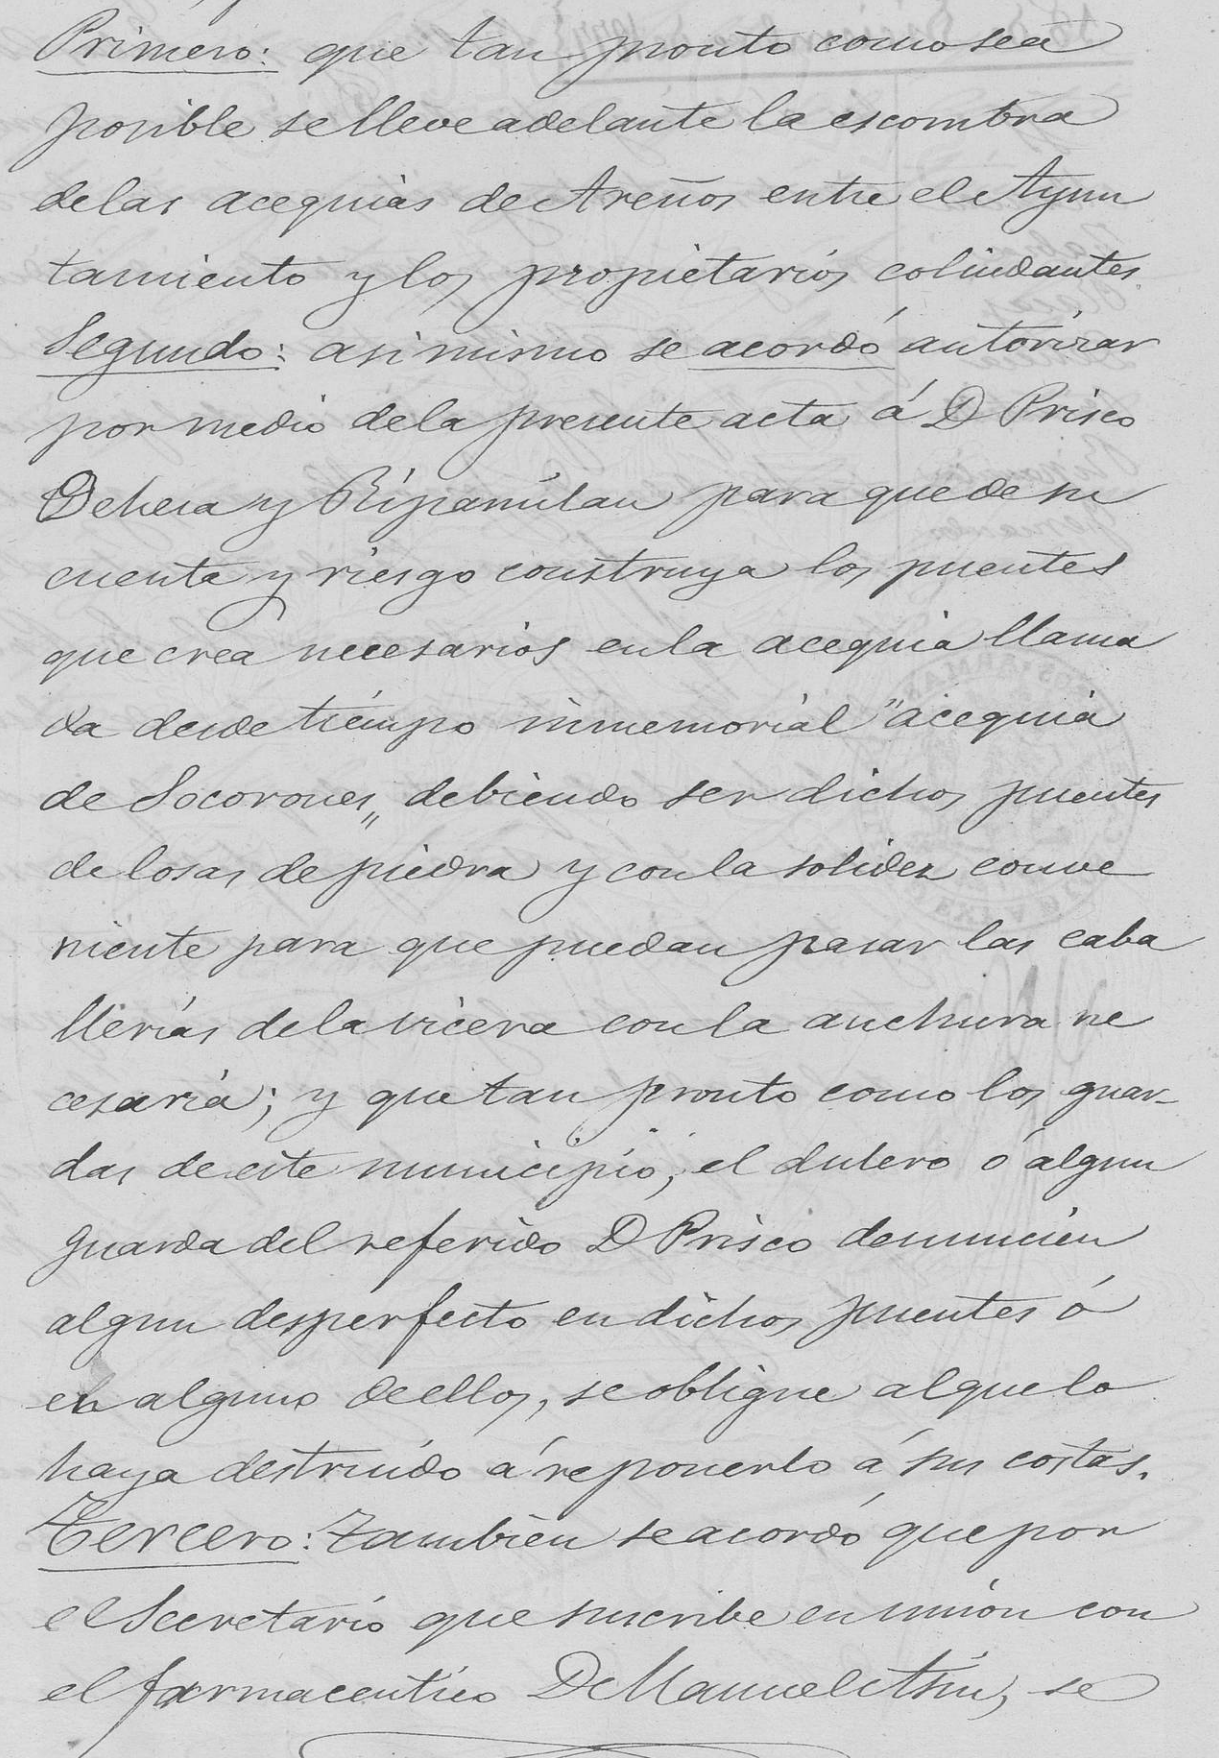 Primero: que tan pronto como sea
posible se lleve adelante la escombra
de las acequias de Areños entre el Ayun
tamiento y los propietarios colindantes.
Segundo: asi mismo se acordó autorizar
por medio de la presente acta á D Prisco
y Ripamilan para que de su
cuenta y riesgo construya los puentes
que crea necesarios en la acequia llama
da desde tiempo inmemorial "acequia
de Socorones„ debiendo ser dichos puentes
de losas de piedra y con la solidez conve
niente para que puedan pasar las caba
llerías de la vicera con la anchura ne
cesaria; y que tan pronto como los guar-
das de este municipio, el dulero ó algun
guarda del referido D Prisco denuncien
algun desperfecto en dichos puentes ó
en alguno de ellos, se obligue al que lo
haya destruido á reponerlo á sus costas.
Tercero: Tambien se acordó que por
el Secretario que suscribe en unión con
el farmaceutico D Manuel Asin, se